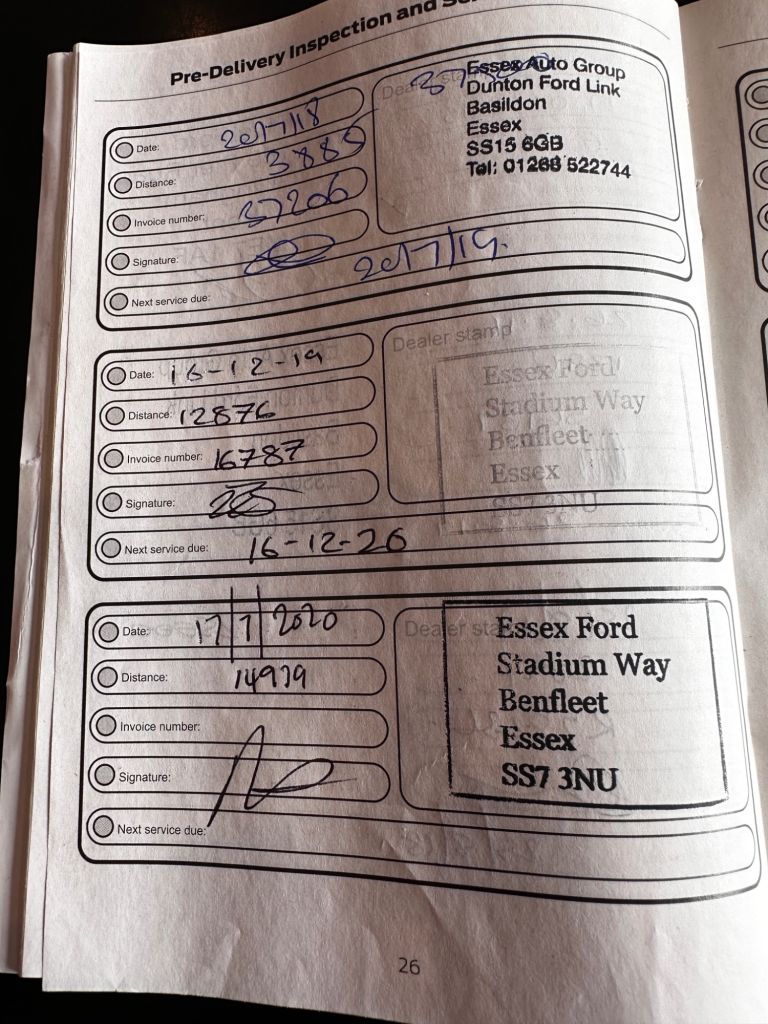 Pre-Delivery Inspection and
Date: 20/7/18
Distance: 3885
Invoice number: 37206
Signature:
Next service due: 20/7/19.
Essex Auto Group
Dunton Ford Link
Basildon
Essex
SS15 6GB
Tel: 01268 522744
Date: 16-12-19
Distance: 12876
Invoice number: 16787
Signature:
Next service due: 16-12-20
Dealer stamp
Essex Ford
Stadium Way
Benfleet
Essex
SS7 3NU
Date: 17/7/2020
Distance: 14979
Invoice number:
Signature:
Next service due:
Dealer
Essex Ford
Stadium Way
Benfleet
Essex
SS7 3NU
26